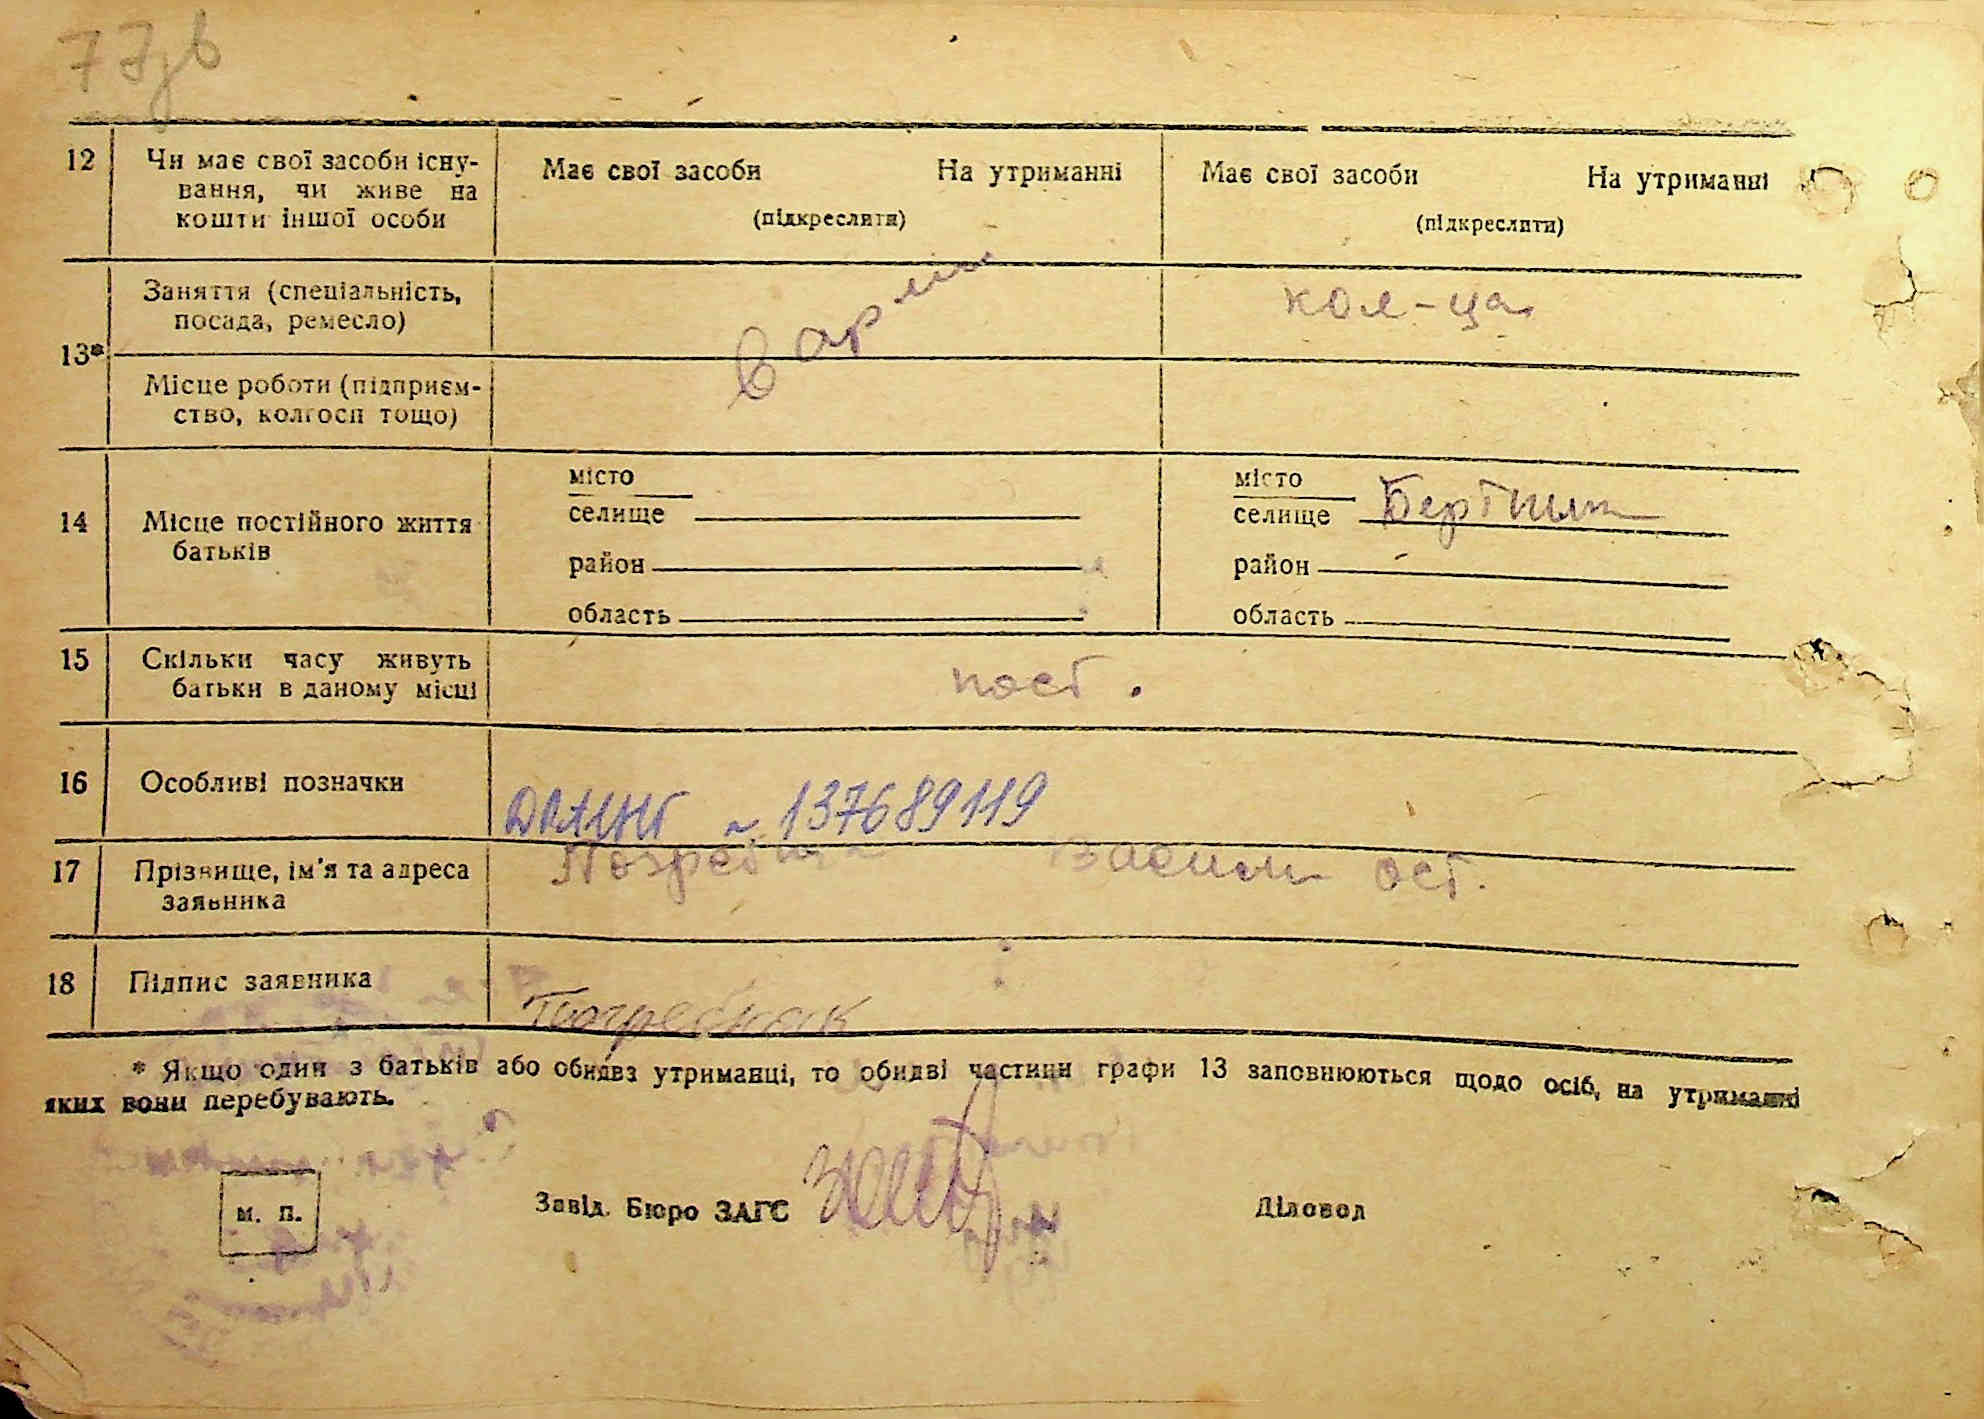 77зв
12 Чи має свої засоби існу- Має свої засоби На утриманні Має свої засоби На утриманні
вання, чи живе на
кошти іншої особи (підкреслити) (підкреслити)
Заняття (спеціальність, кол-ца
посада, ремесло)
13* в армии
Місце роботи (підприєм-
ство, колгосп тощо)
місто місто
14 Місце постійного життя селище селище
батьків район район
область область
15 Скільки часу живуть пост.
батьки в даному місці
16 Особливі позначки ДРАЦНГ ~ 137689119
17 Прізвище, ім'я та адреса
заявника
18 Підпис заявника Погребняк
* Якщо один з батьків або обидва утриманці, то обидві частини графи 13 заповнюються щодо осіб, на утриманні
яких вони перебувають.
м. п. Завід. Бюро ЗАГС Діловод